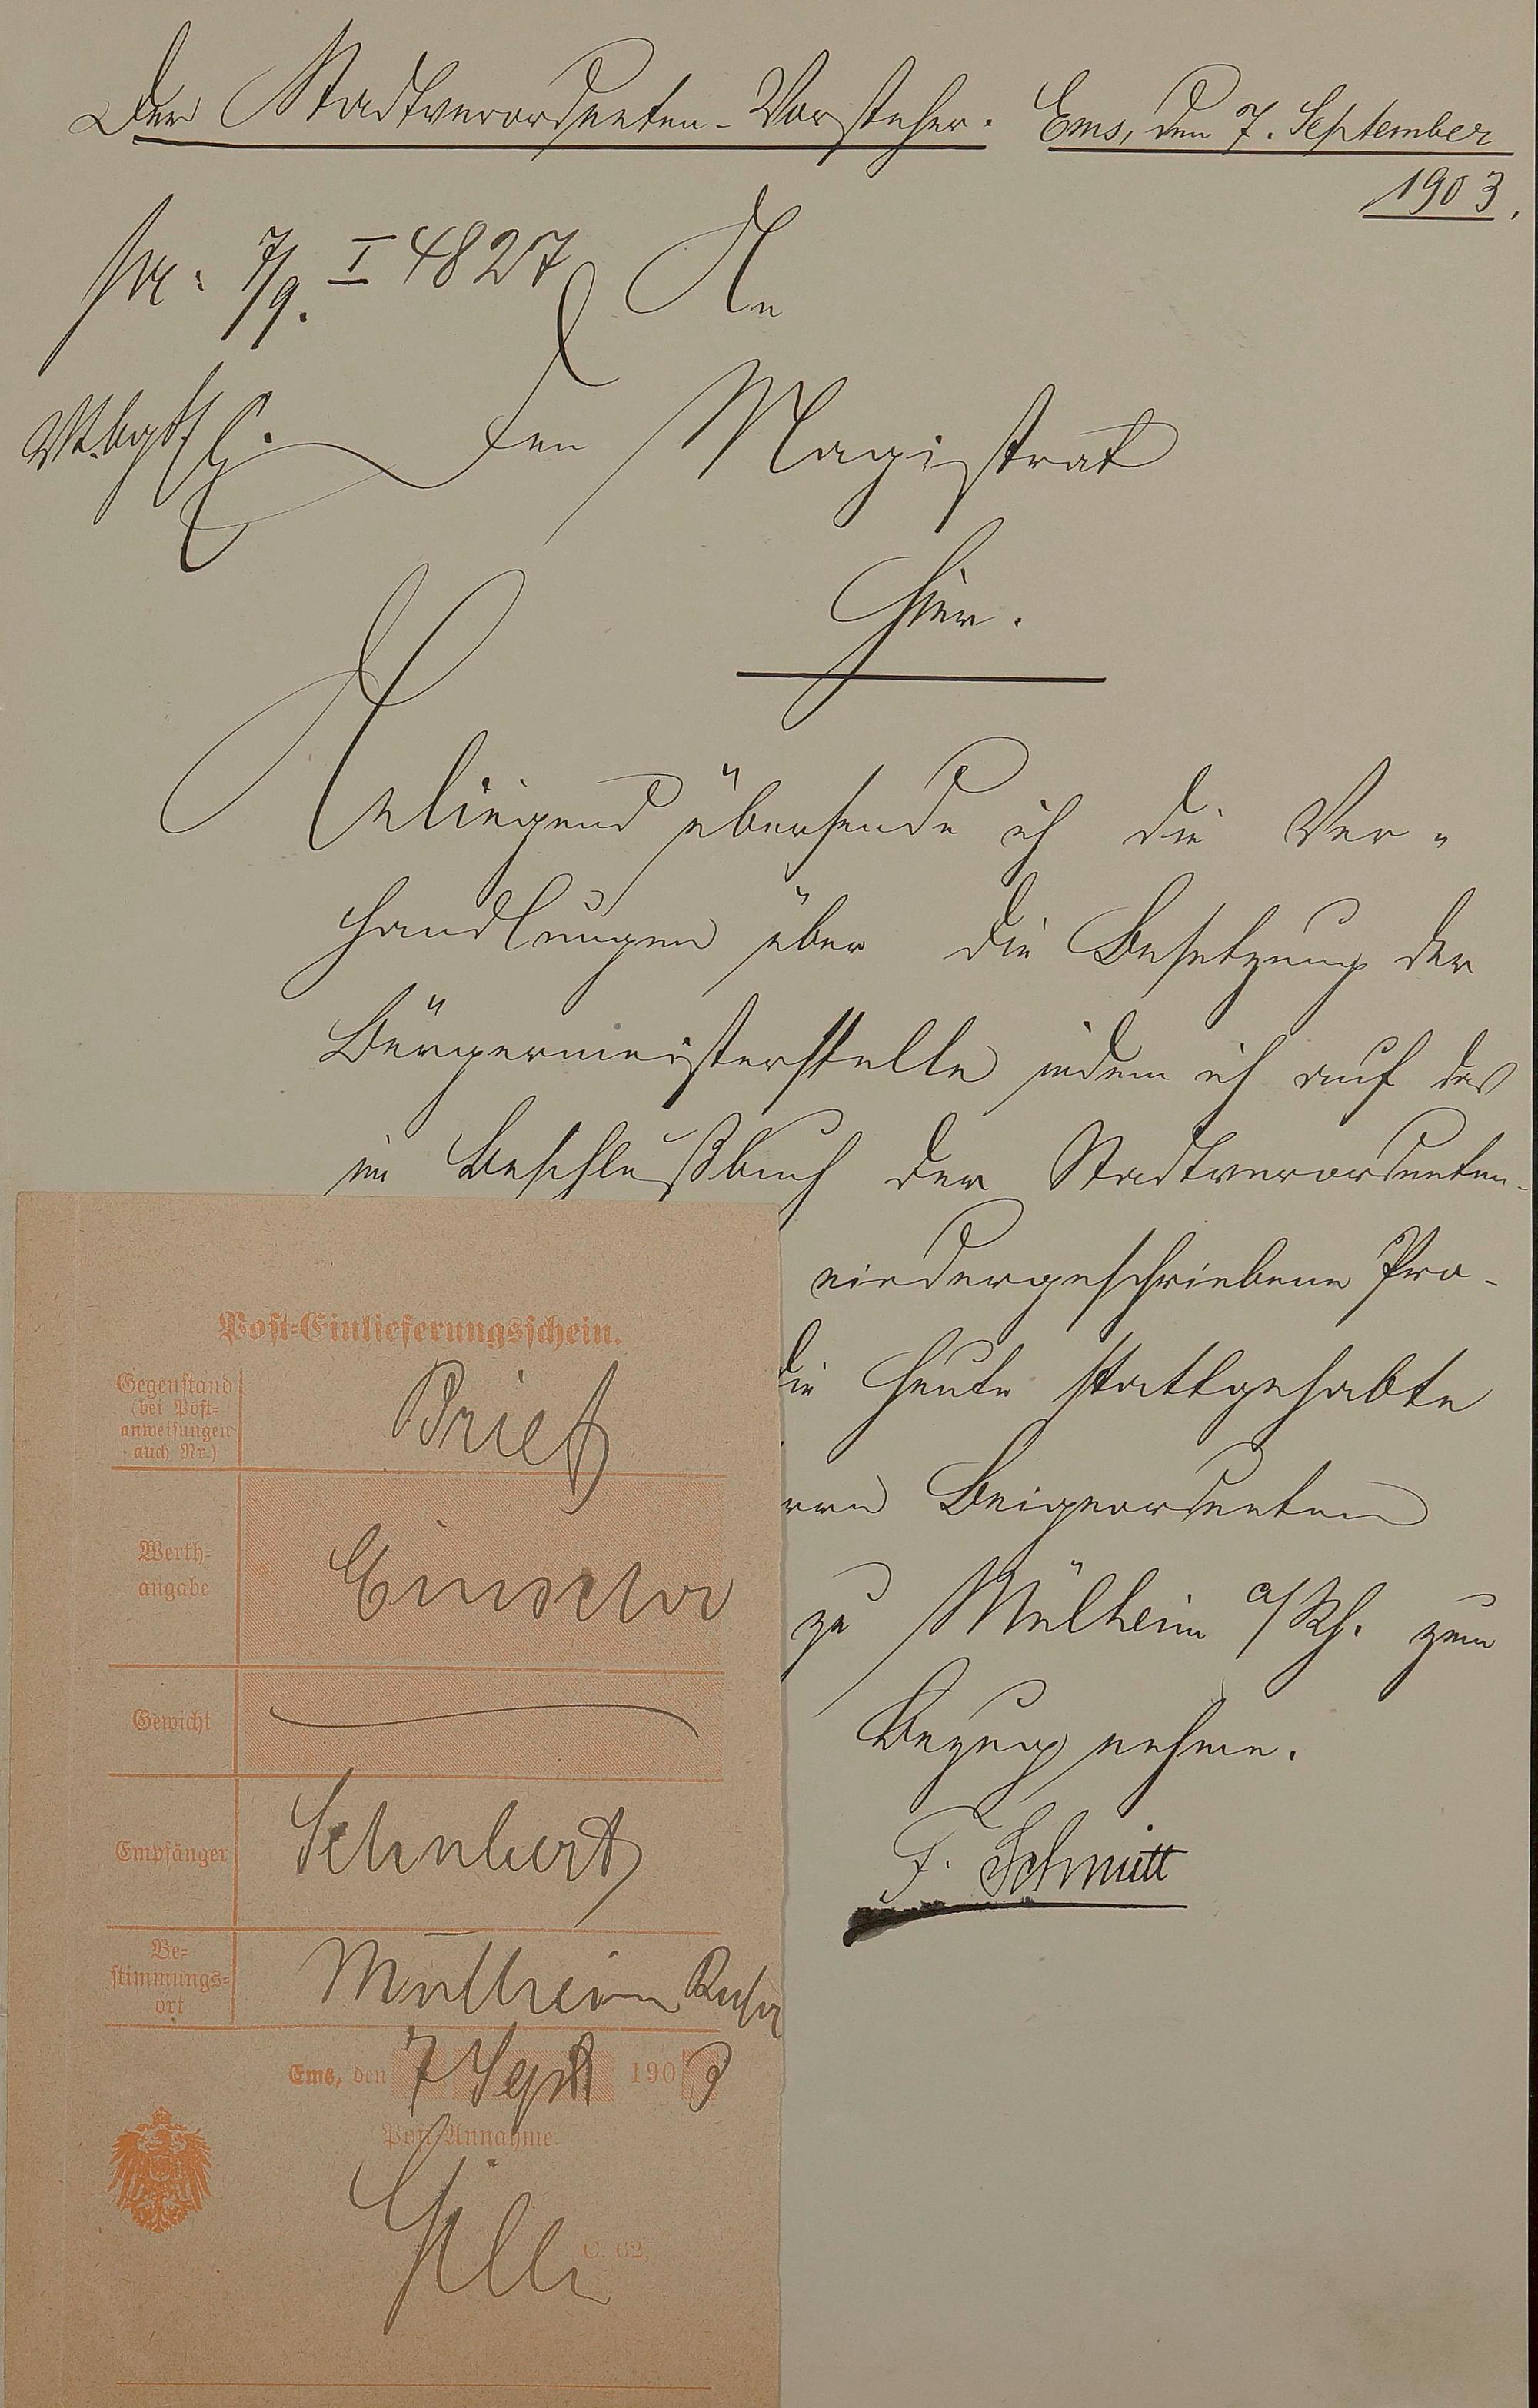 Der Stadtverordneten-Vorsteher. Ems, den 7. September
1903.
pr. 7/9. I 4827
An
den Magistrat
Hier.
Anliegend übersende ich die Ver-
handlungen über die Besetzung der
Bürgermeisterstelle indem ich auf das
im Beschlußbuch der Stadtverordneten-
niedergeschriebene Pro-
die heute stattgehabte
Beigeordneten
zu Mülheim a/Rh. zum
Bezug nehme.
F. Schmitt
Post-Einlieferungsschein.
Gegenstand
(bei Post-
anweisungen
auch Nr.)
Brief
Werth-
angabe
Einschr
Gewicht
Empfänger
Schubert
Be-
stimmungs-
ort
Mülheim Ruhr
Ems, den 7 Sept 1903
Post-Annahme.
C. 62.